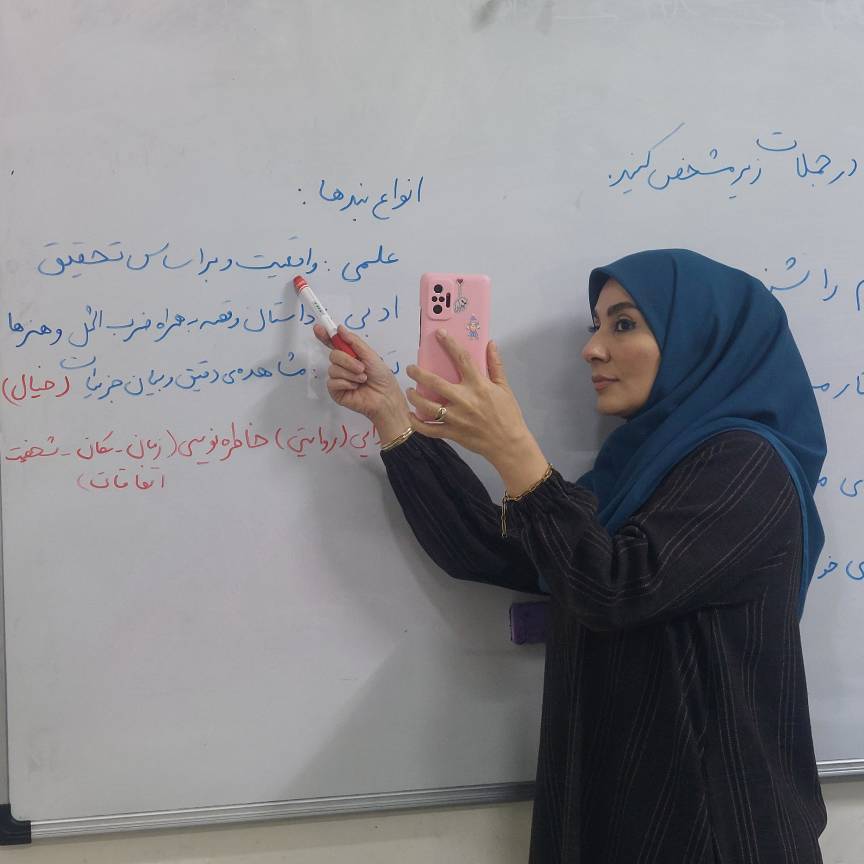 در جملات زیر مشخص کنید.
انواع بندها :
علمی : واقعیت و بر اساس تحقیق
ادبی داستان و قصه - همراه ضرب المثل و هنرها
: مشاهده‌ی دقیق و بیان جزییات (خیال)
(روایتی) خاطره نویسی (زمان - مکان - شخصیت
اتفاقات)